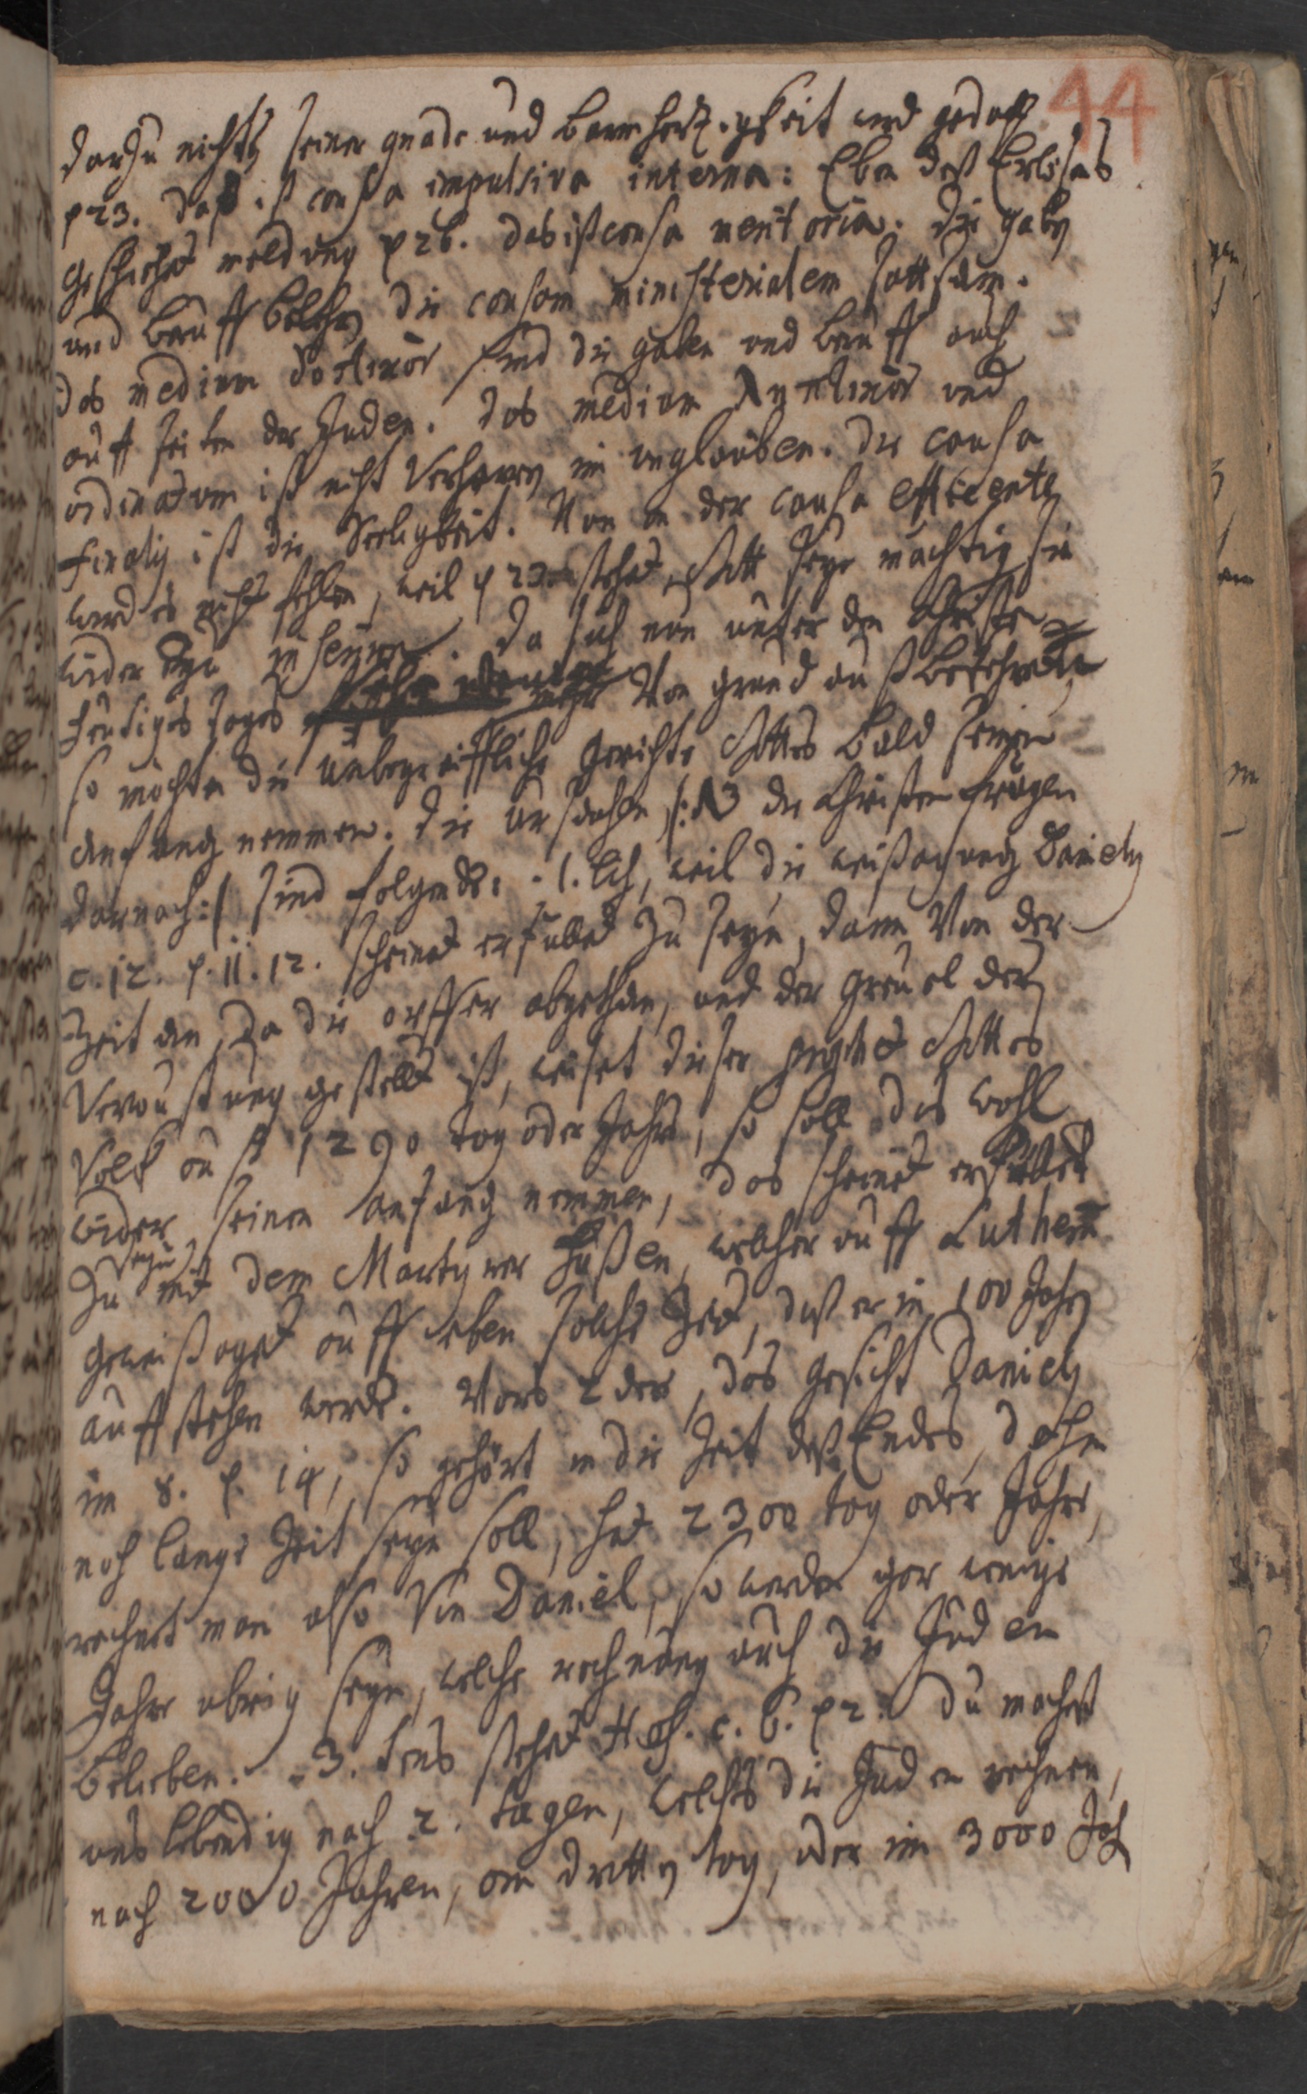 44
darzu nichts seiner gnade und barmhertzigkeit wird gedacht
p 23. daß ist causa impulsiva interna: Eben deß Erlösers
geschiehet meldung p 26. das ist causa meritoria. die gaben
und beruff die causam ministerialem
das medium δοτικὸν sind die gaben und beruff auch
auff seiten der Juden. das medium ληπτικὸν und
ordinatum ist nicht verharren im unglauben. die causa
finalis ist die Seeligkeit. Nun an der causa efficiente
wird es nicht fehlen, weil p 23 stehet, Gott seye mächtig sie
wider ein zu . da sich nun unter den Christen
heutiges tages mehr von grund auß
so möchten die unbegreiffliche gerichte Gottes bald seinen
anfang nemmen. die ursachen /: NB die Christen fragen
darnach :/ sind folgende: 1. lich, weil die weissagung Daniels
c. 12. p. 11. 12. scheinet erfüllet zu seyn, dann von der
Zeit an, da die opffer abgethan, und der greuel der
verwüstung gestellt ist, weiset dieser prophet Gottes
Volck auff 1290 tag oder Jahr, so soll das wohl
wider seinen anfang nemmen, das scheint erfüllet
zu seyn mit dem Martyrer Hussen, welcher auff Luthern
geweissaget auff eben solche Zeit, daß er in 100 Jahren
auffstehen werde. Vors 2 der, das gesicht Daniels
im 8. p. 14, so gehört in die Zeit deß Endes, dahin
noch lange Zeit seyn soll, hat 2300 tag oder Jahr,
rechnet man also von Daniel, so werden gar wenige
Jahre übrig seyn, welche rechnung auch die Juden
belieben. 3. tens stehet Hos. c. 6. p 2. du machst
uns lebendig nach 2. tagen, welches die Juden rechnen,
nach 2000 Jahren, am dritten tag, oder im 3000 Jahr